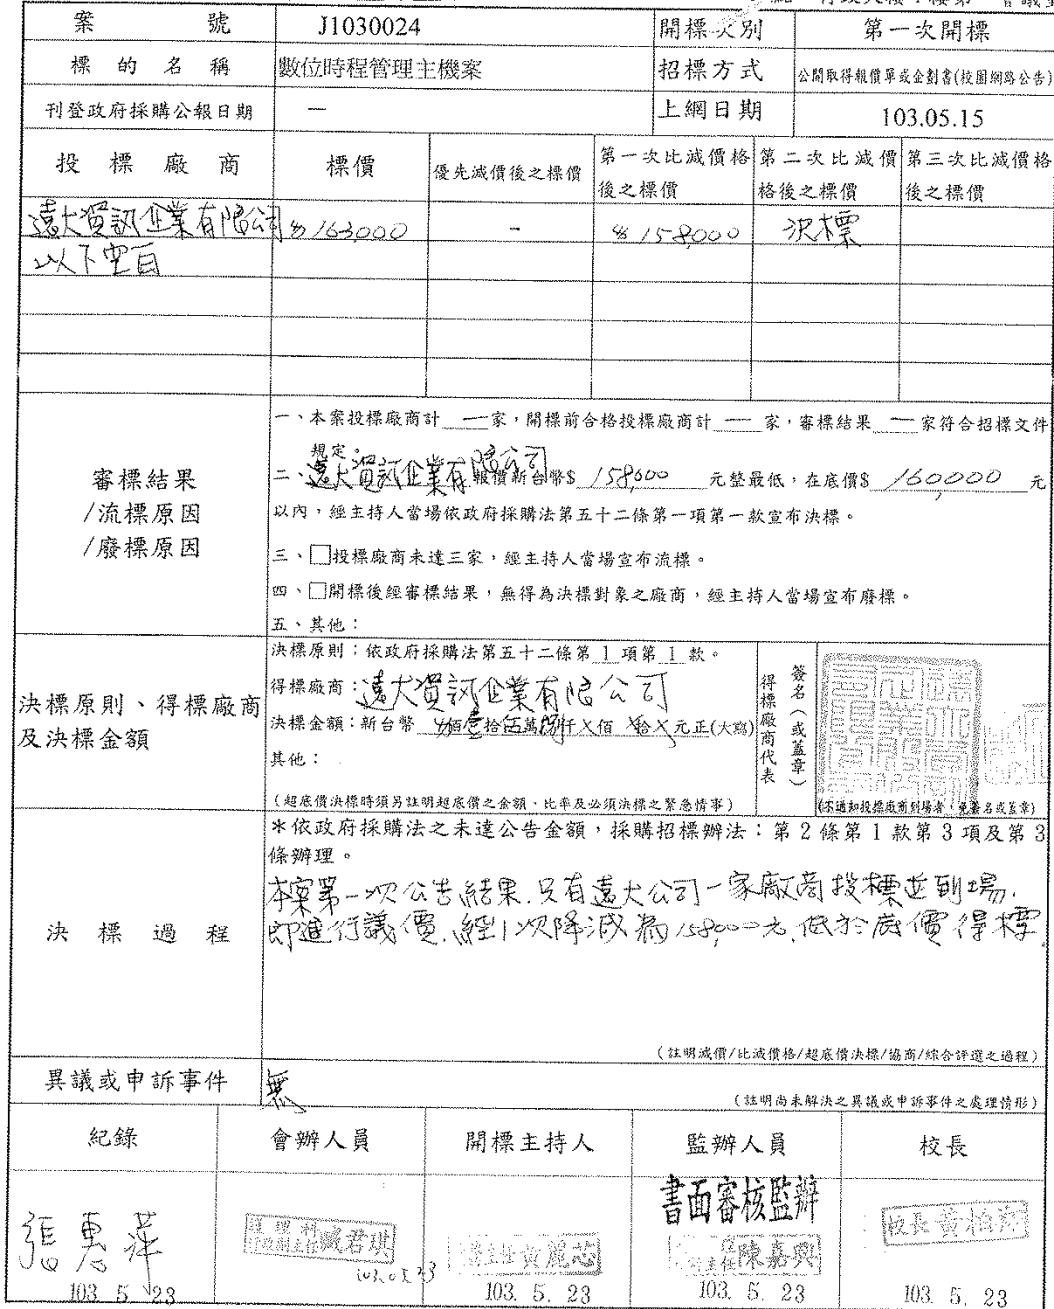 案號 J1030024 開標次別 第一次開標
標的名稱 數位時程管理主機案 招標方式 公開取得報價單或企劃書(校園網路公告)
刊登政府採購公報日期 — 上網日期 103.05.15
投標廠商 標價 優先減價後之標價 第一次比減價格後之標價 第二次比減價格後之標價 第三次比減價格後之標價
遠大資訊企業有限公司 $163,000 - $158,000 決標
以下空白
審標結果
/流標原因
/廢標原因
一、本案投標廠商計 一 家，開標前合格投標廠商計 一 家，審標結果 一 家符合招標文件
規定。
二、遠大資訊企業有限公司 報價新台幣$ 158,000 元整最低，在底價$ 160,000 元
以內，經主持人當場依政府採購法第五十二條第一項第一款宣布決標。
三、□投標廠商未達三家，經主持人當場宣布流標。
四、□開標後經審標結果，無得為決標對象之廠商，經主持人當場宣布廢標。
五、其他：
決標原則、得標廠商
及決標金額
決標原則：依政府採購法第五十二條第 1 項第 1 款。
得標廠商：遠大資訊企業有限公司
決標金額：新台幣 壹佰 伍拾 萬 捌仟 X 佰 X 拾 X 元正(大寫)
其他：
(超底價決標時須另註明超底價之金額、比率及必須決標之緊急情事)
得標廠商代表
簽名(或蓋章)
(不通知投標廠商到場者，免簽名或蓋章)
決標過程
＊依政府採購法之未達公告金額，採購招標辦法：第2條第1款第3項及第3
條辦理。
本案第一次公告結果.只有遠大公司一家廠商投標並到場.
即進行議價.經1次降減為158,000元.低於底價得標.
(註明減價/比減價格/超底價決標/協商/綜合評選之過程)
異議或申訴事件 無
(註明尚未解決之異議或申訴事件之處理情形)
紀錄 會辦人員 開標主持人 監辦人員 校長
書面審核監辦
張惠萍 臧君琪 黃麗芯 主任陳嘉興 校長黃柏
103. 5. 23 103.05.23 103. 5. 23 103. 5. 23 103. 5. 23